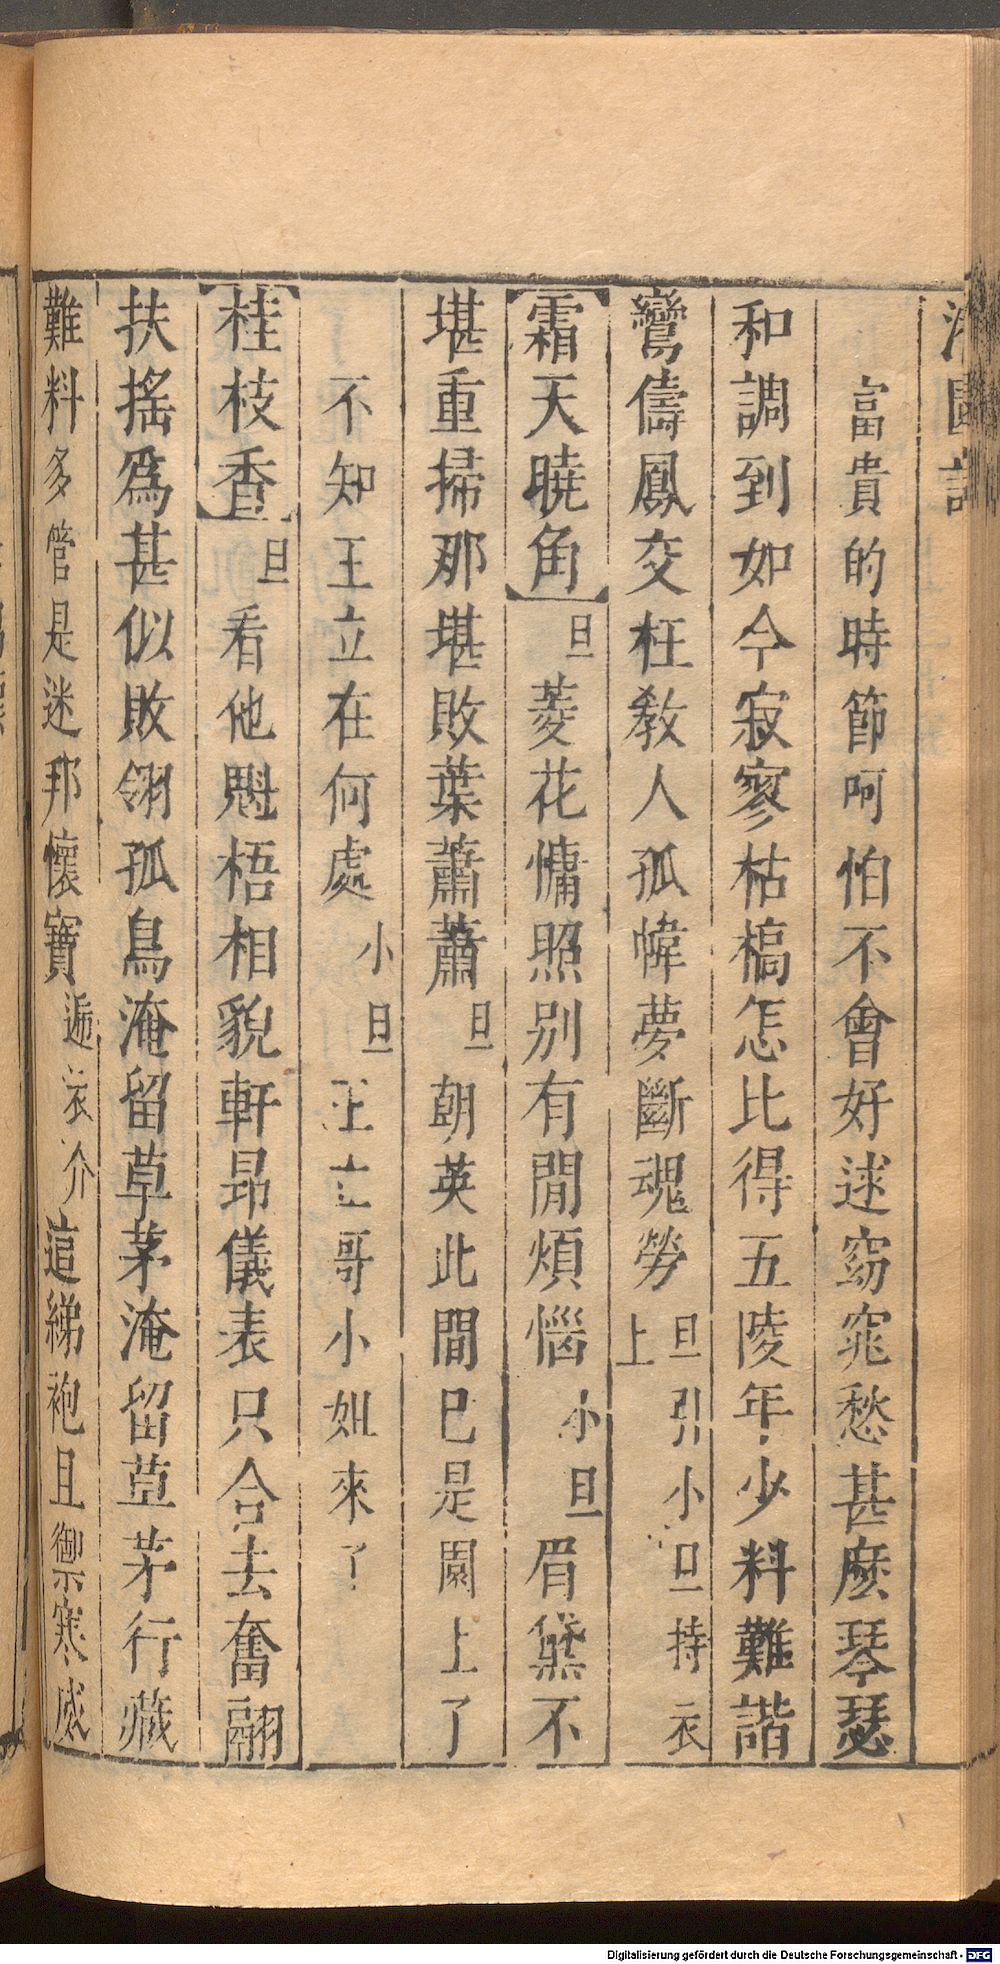 富貴的時節呵怕不會好逑窈窕愁甚麽琴瑟
和調到如今寂寥枯槁怎比得五陵年少料難諧
鸞儔鳳交枉教人孤幃夢斷魂勞旦引小旦持衣上
【霜天曉角】旦菱花慵照別有閒煩惱小旦眉黛不
堪重掃那堪敗葉蕭蕭旦朝英此間已是園上了
不知王立在何處小旦王立哥小姐來了
【桂枝香】旦看他魁梧相貌軒昂儀表只合去奮翮
扶搖爲甚似敗翎孤鳥淹留草茅淹留草茅行藏
難料多管是迷邦懷寶遞衣介這綈袍且禦寒威
Digitalisierung gefördert durch die Deutsche Forschungsgemeinschaft - DFG